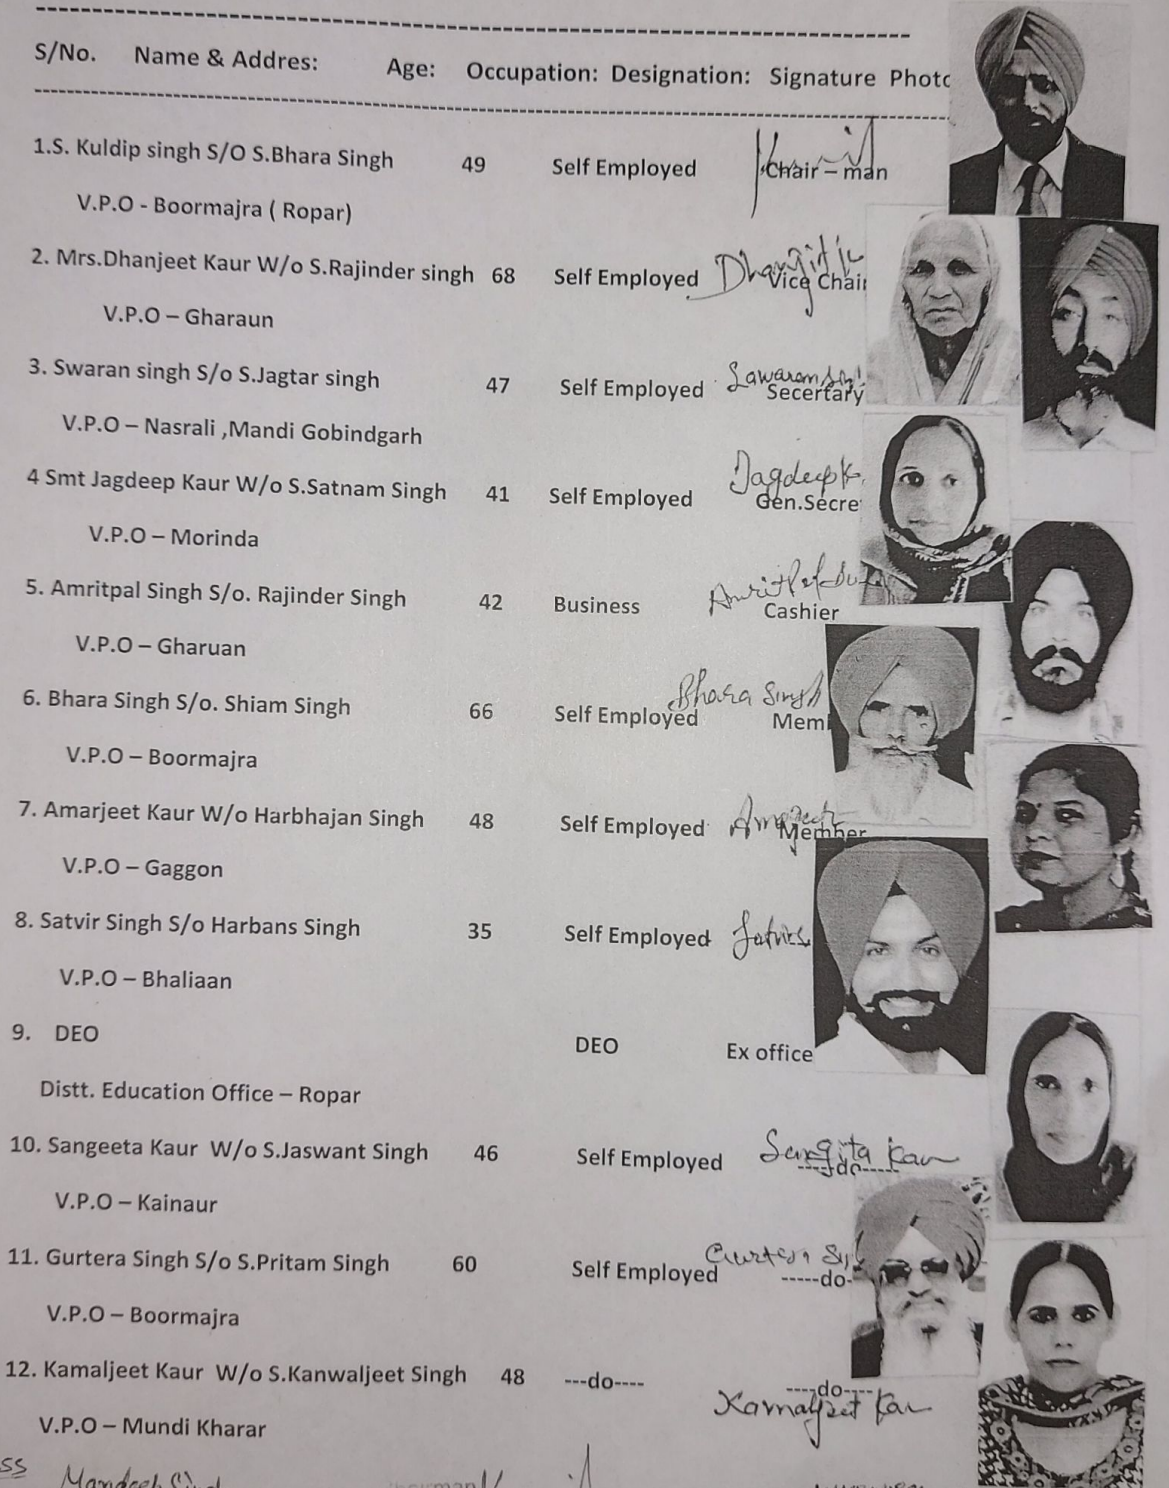 S/No. Name & Addres: Age: Occupation: Designation: Signature Photo
1.S. Kuldip singh S/O S.Bhara Singh 49 Self Employed Chair – man
V.P.O - Boormajra ( Ropar)
2. Mrs.Dhanjeet Kaur W/o S.Rajinder singh 68 Self Employed Dhanjit k Vice Chair
V.P.O – Gharaun
3. Swaran singh S/o S.Jagtar singh 47 Self Employed Sawaran Secertary
V.P.O – Nasrali ,Mandi Gobindgarh
4 Smt Jagdeep Kaur W/o S.Satnam Singh 41 Self Employed Jagdeep k Gen.Secre
V.P.O – Morinda
5. Amritpal Singh S/o. Rajinder Singh 42 Business Cashier
V.P.O – Gharuan
6. Bhara Singh S/o. Shiam Singh 66 Self Employed Bhara Singh Mem
V.P.O – Boormajra
7. Amarjeet Kaur W/o Harbhajan Singh 48 Self Employed Member
V.P.O – Gaggon
8. Satvir Singh S/o Harbans Singh 35 Self Employed
V.P.O – Bhaliaan
9. DEO DEO Ex office
Distt. Education Office – Ropar
10. Sangeeta Kaur W/o S.Jaswant Singh 46 Self Employed Sangita Kaur ----do----
V.P.O – Kainaur
11. Gurtera Singh S/o S.Pritam Singh 60 Self Employed Gurtera -----do-
V.P.O – Boormajra
12. Kamaljeet Kaur W/o S.Kanwaljeet Singh 48 ---do---- ----do----
Kamaljeet Kaur
V.P.O – Mundi Kharar